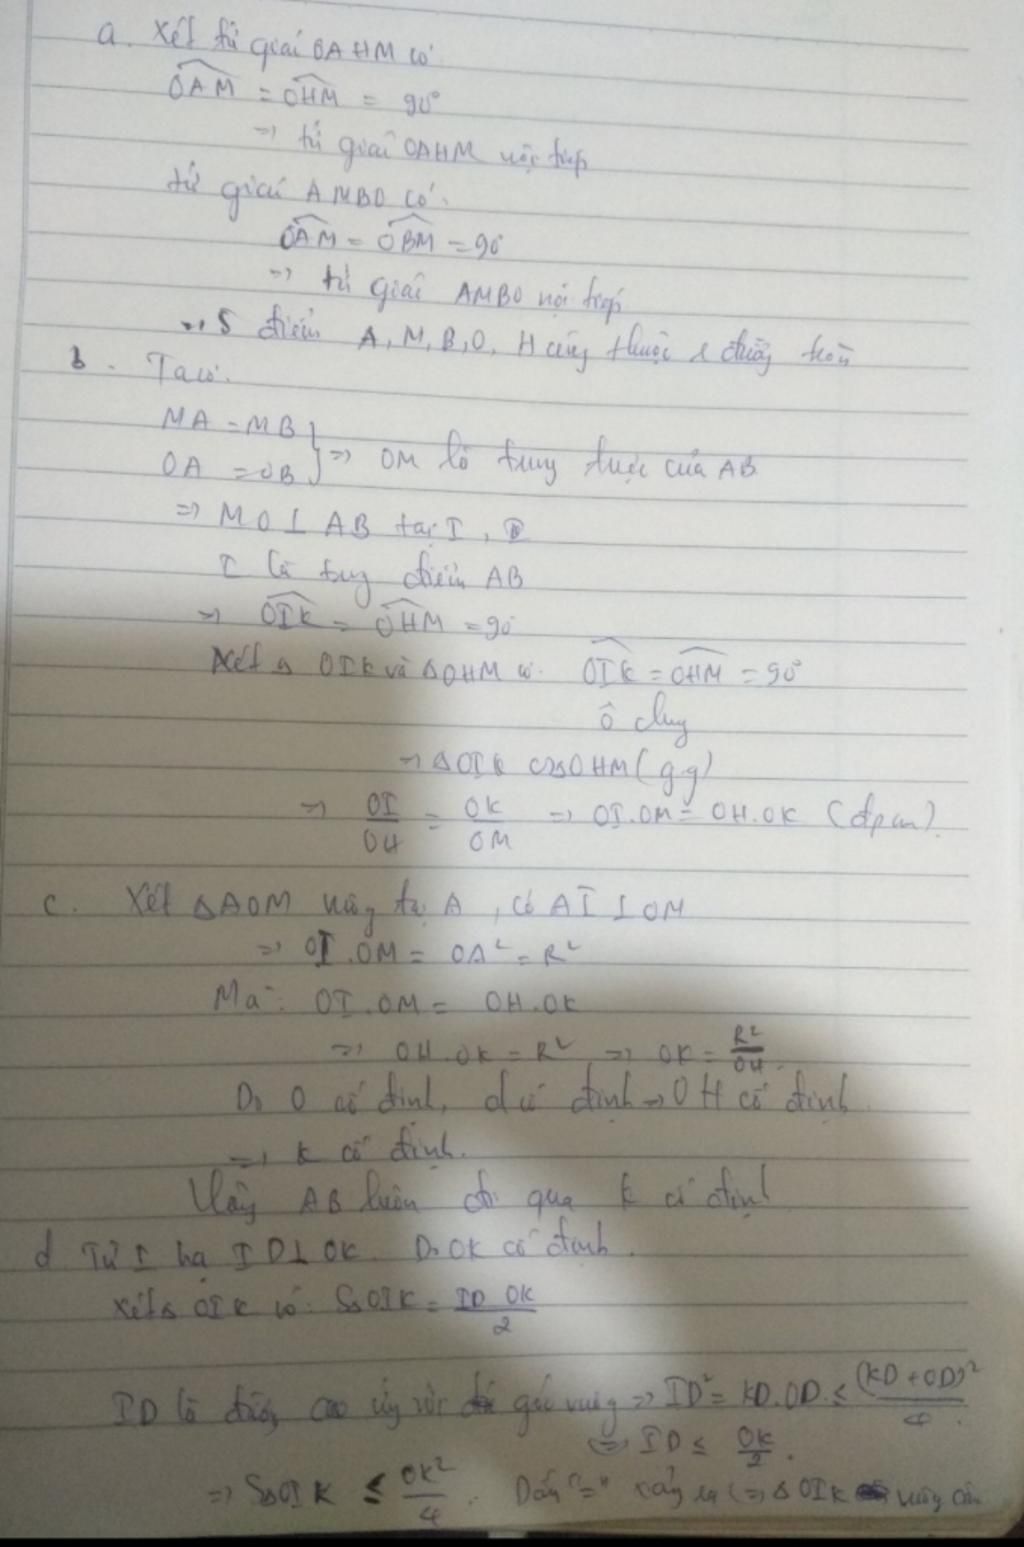 a. Xét tứ giác OAHM có
OAM = OHM = 90°
=> tứ giác OAHM nội tiếp
tứ giác AMBO có:
OAM = OBM = 90
=> tứ giác AMBO nội tiếp
=> 5 điểm A, M, B, O, H cùng thuộc 1 đường tròn
b. Ta có:
MA = MB
OA = OB } => OM là trung trực của AB
=> MO ⊥ AB tại I,
I là trung điểm AB
=> OIK = OHM = 90
Xét Δ OIK và Δ OHM có: OIK = OHM = 90°
Ô chung
=> Δ OIK ∽ Δ OHM (g.g)
=> OI/OH = OK/OM => OI.OM = OH.OK (đpcm).
c. Xét Δ AOM vuông tại A, có AI ⊥ OM
=> OI.OM = OA² = R²
Mà: OI.OM = OH.OK
=> OH.OK = R² => OK = R²/OH.
Do O cố định, d cố định => OH cố định
=> K cố định.
Vậy AB luôn đi qua K cố định
d Từ I hạ ID ⊥ OK. Do OK cố định.
Xét Δ OIK có: SΔOIK = ID.OK/2
ID là đường cao ứng với góc vuông => ID² = KD.OD ≤ (KD+OD)²/4.
=> ID ≤ OK/2.
=> SΔOIK ≤ OK²/4. Dấu "=" xảy ra <=> Δ OIK vuông cân